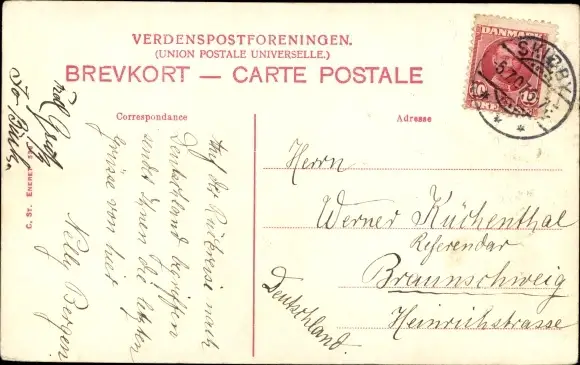 VERDENSPOSTFORENINGEN.
(UNION POSTALE UNIVERSELLE.)
BREVKORT — CARTE POSTALE
Correspondance
Adresse
DANMARK
10
SKIBBY
5.7.07
Auf der Rückreise nach
Deutschland begriffen
sendet Ihnen die letzten
Grüsse von hier
Nelly Bergen
C. ST. ENERET
Herrn
Werner Küchenthal
Referendar
Braunschweig
Heinrichstrasse
Deutschland.